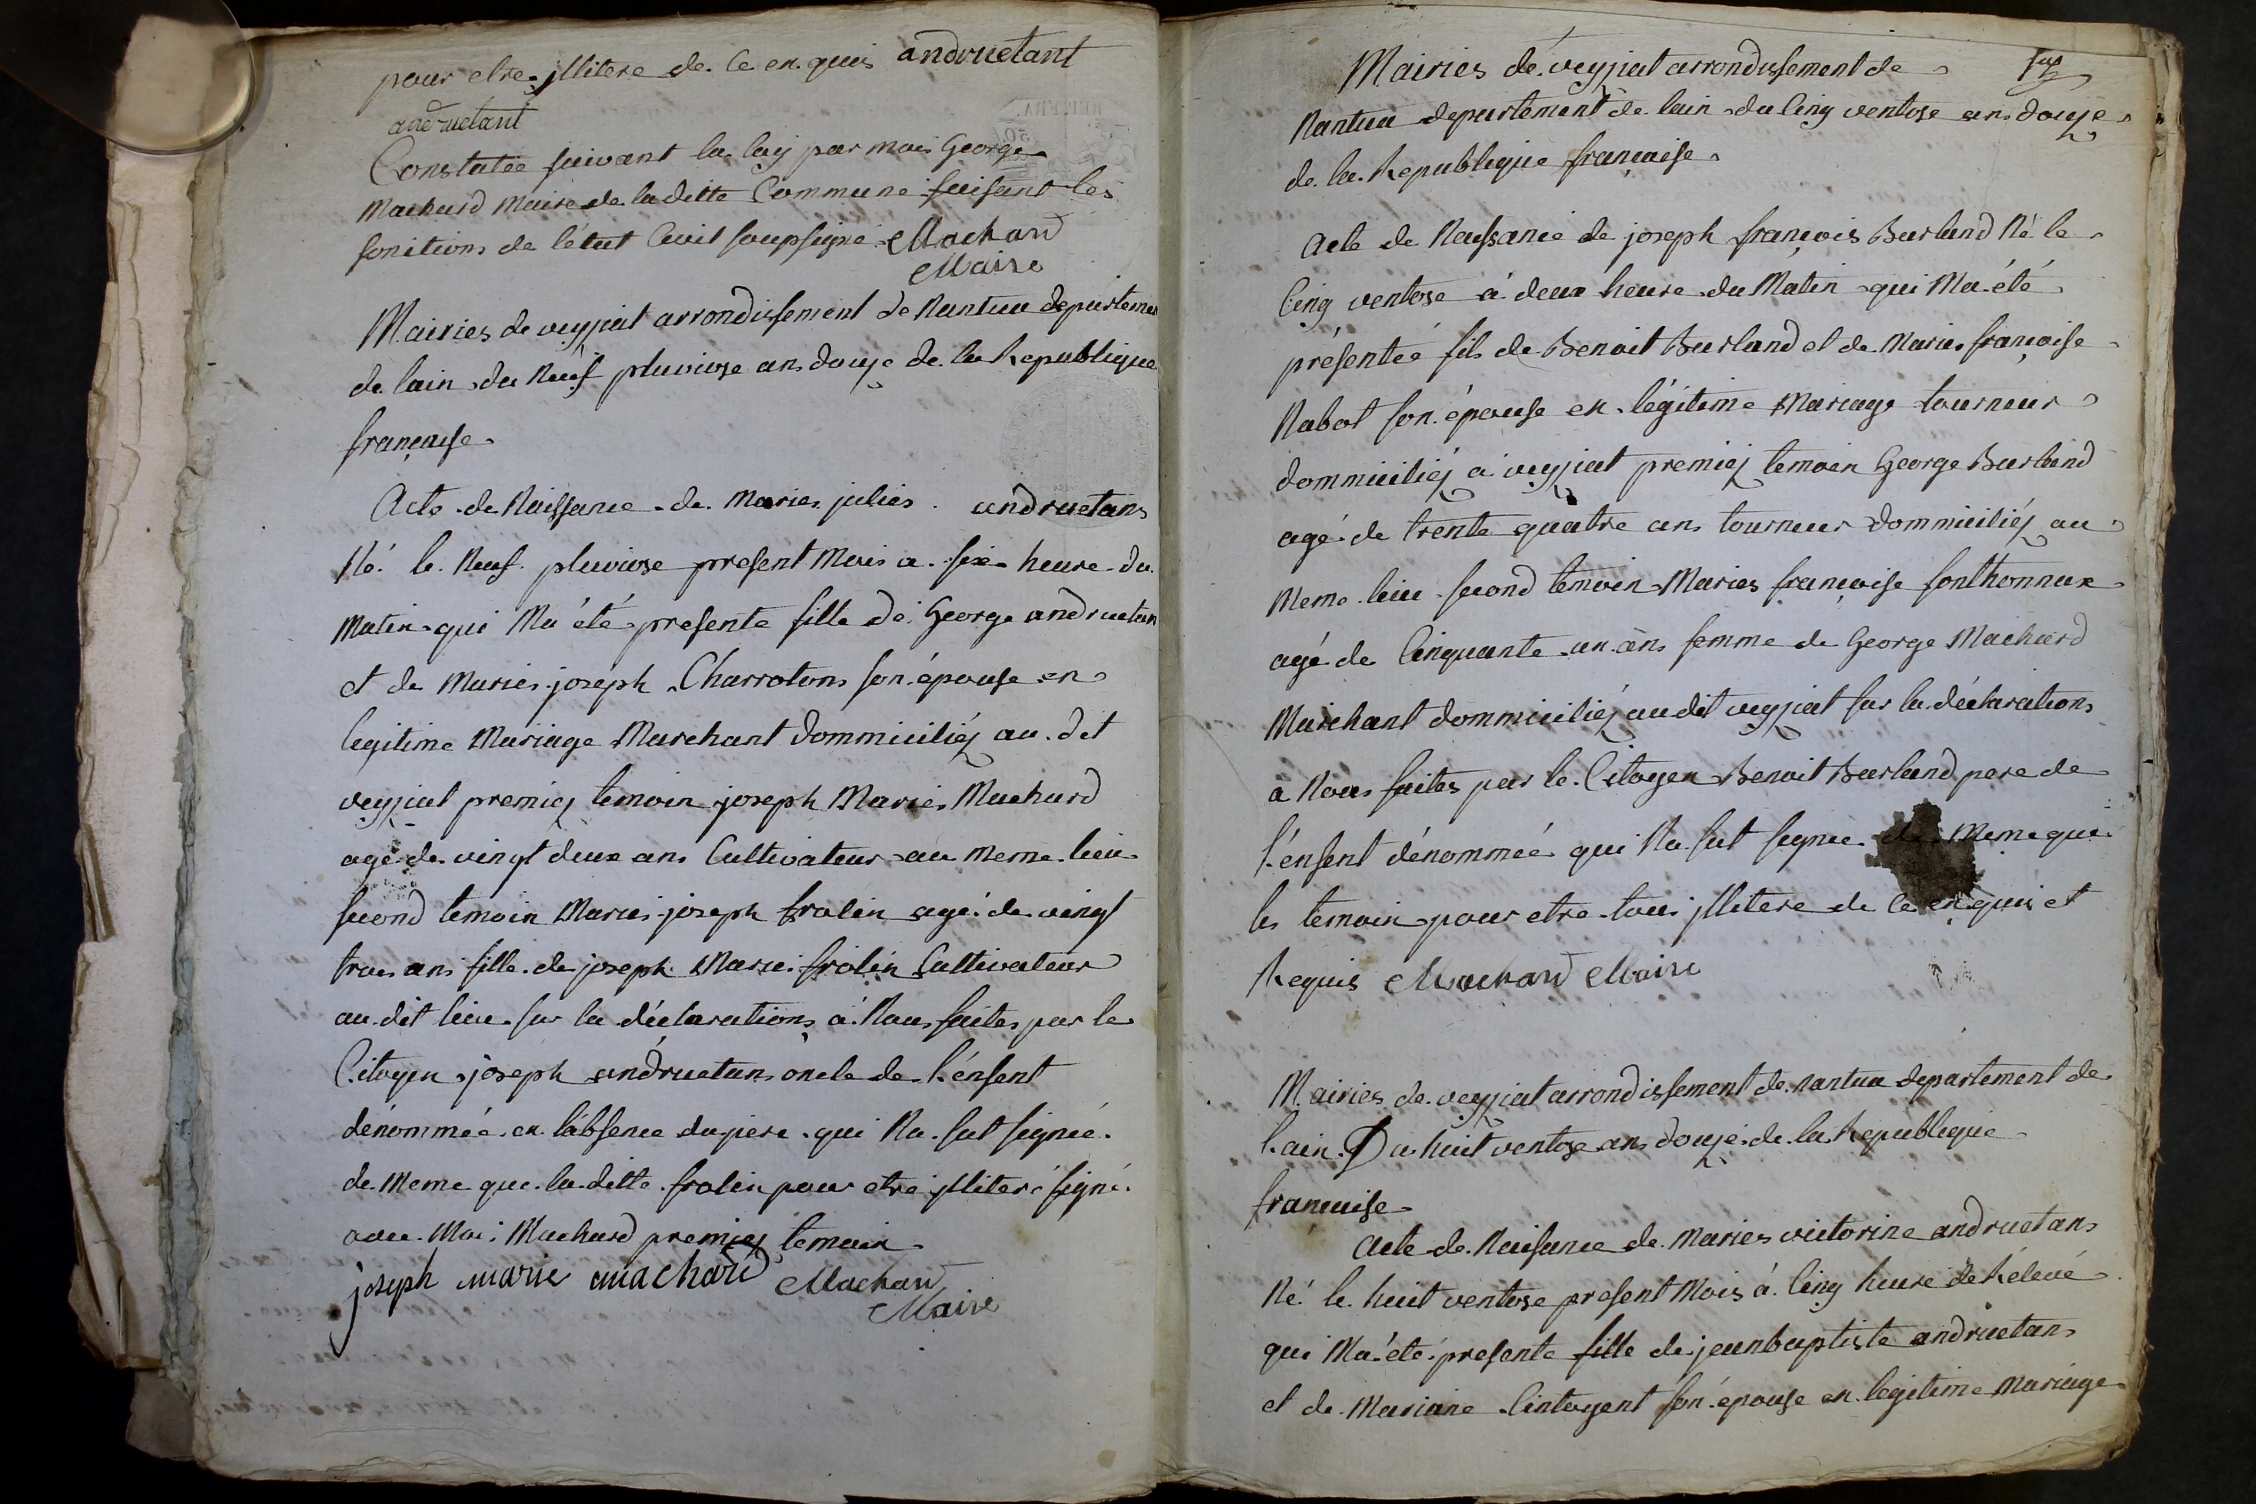 pour etre jllitere de ce en quis andruetant
andruetant
Constatée suivant la loy par moi George
Machard Maire de la ditte Commune faisant les
fonctions de l'état Civil soupsigné Machard
Maire
Mairies de veyziat arrondissement de Nantua departemen
de lain du Neuf pluviose an douze de la Republique
françaisse
Acte de Naissance de Maries julies andruetans
Né le Neuf pluviose present Mois a six heure du
Matin qui Ma été presente fille de George andruetan
et de Maries joseph Charrotons son épouse en
legitime Mariage Marchant dommiciliéz au dit
veyziat premiez temoin joseph Maries Machard
agé de vingt deux ans Cultivateur au Meme lieu
second temoin Maries joseph frolin agé de vingt
trois ans fille de joseph Marie frolin Cultivateur
au dit lieu sur la déclarations á Nous faites par le
Citoyen joseph andruetans oncle de l'énfent
dénommée en l'absence du pere qui Na sut signée
de Meme que la ditte frolin pour etre jlliteré signé
avec Moi Machard premiez temoin
joseph marie machard Machard
Maire
Mairies de veyziat arrondissement de
Nantua departement de lain du Cinq ventose an douze
de la Republique françaisse
Acte de Naissance de joseph françois Burland Né le
Cinq ventose á deux heure du Matin qui Ma été
présentée fils de Benoit Burland et de Maries françoise
Nabot son épouse en légitime Mariage tourneur
dommiciliéz a veyziat premiez temoin George Burland
agé de trente quatre ans tourneur dommiciliéz au
Meme lieu second temoin Maries françoise fonthonnax
agé de Cinquante un ans femme de George Machard
Marchant dommiciliéz audit veyziat sur la déclarations
a Nous faites par le Citoyen Benoit Burland pere de
l'énfent dénommée qui Na sut signée de Meme que
les temoin pour etre tous jllitere de ce en quis et
Requis Machard Maire
Mairies de veyziat arrondissement de Nantua departement de
l'ain Du huit ventose an douze de la Republique
francaise
Acte de Naissance de Maries victorine andruetans
Né le huit ventose present Mois á Cinq heure de Rélevé
qui Ma été presente fille de jeanbaptiste andruetans
et de Mariane Cintoyent son épouse en legitime Mariage